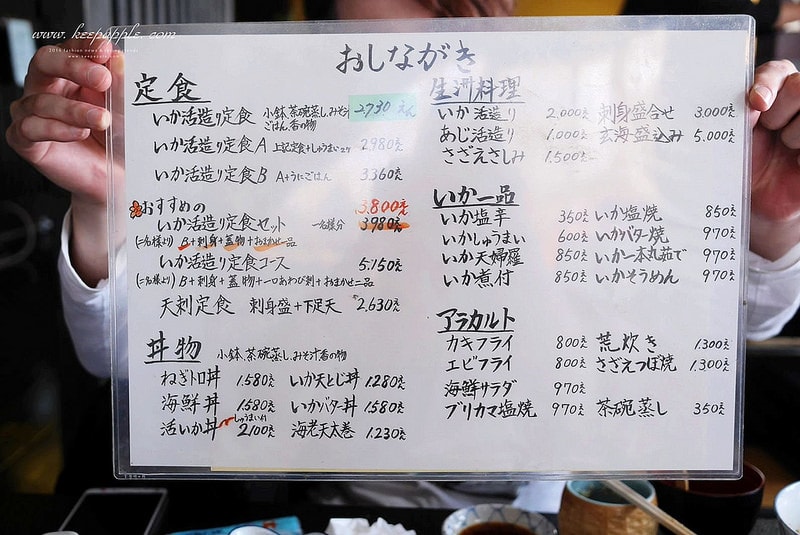 www.keepapple.com
おしながき
定食
いか活造り定食 小鉢、茶碗蒸し、みそ汁 ごはん、香の物 2,730えん
いか活造り定食A 上記定食+しゅうまい2ケ 2,980えん
いか活造り定食B A+うにごはん 3,360えん
おすすめの 3,800えん
いか活造り定食セット 一名様分 3,980えん
(二名様より) B+刺身+蓋物+おまかせ一品
いか活造り定食コース 5,150えん
(二名様より) B+刺身+蓋物+一口あわび刺+おまかせ二品
天刺定食 刺身盛+下足天 2,630えん
丼物 小鉢、茶碗蒸し、みそ汁、香の物
ねぎトロ丼 1,580えん いか天とじ丼 1,280えん
海鮮丼 1,580えん いかバター丼 1,580えん
活いか丼 しゅうまい付 2,100えん 海老天太巻 1,230えん
生洲料理
いか活造り 2,000えん 刺身盛合せ 3,000えん
あじ活造り 1,000えん 玄海盛込み 5,000えん
さざえさしみ 1,500えん
いか一品
いか塩辛 350えん いか塩焼 850えん
いかしゅうまい 600えん いかバター焼 970えん
いか天婦羅 850えん いか一本丸茹で 970えん
いか煮付 850えん いかそうめん 970えん
アラカルト
カキフライ 800えん 荒炊き 1,300えん
エビフライ 800えん さざえつぼ焼 1,300えん
海鮮サラダ 970えん
ブリカマ塩焼 970えん 茶碗蒸し 350えん